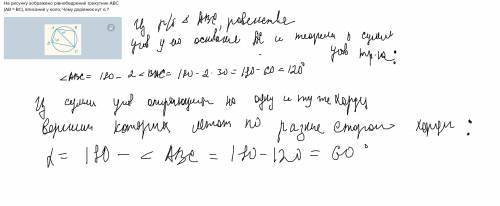 На рисунку зображено рівнобедрений трикутник ABC
(AB = BC), вписаний у коло. Чому дорівнює кут α ?
Из р/б Δ ABC, равенства
углов у основания и теоремы о сумме
углов тр-ка:
∠ABC = 180 - 2∠BAC = 180 - 2·30 = 180 - 60 = 120°
Из суммы углов опирающихся на одну и ту же хорду
вершины которых лежат по разные стороны хорды:
α = 180 - ∠ABC = 180 - 120 = 60°